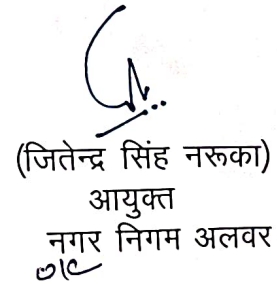 (जितेन्द्र सिंह नरूका)
आयुक्त
नगर निगम अलवर